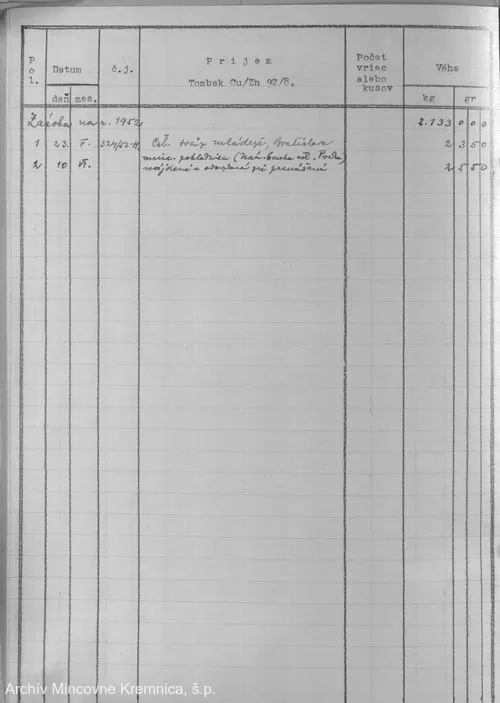 Pol.
Datum
č.j.
Príjem
Tombak Cu/Zn 92/8.
Počet
vriec
alebo
kusov
Váha
deň mes.
kg gr
Zásoba na r. 1952 2.133 000
1 23. V. 324/52-H Čsl. sväz mládeže, Bratislava 2 350
minc. pokladnica
2 10 VI. nájdené a odoslané pri prenášaní 2 550
Archív Mincovne Kremnica, š.p.